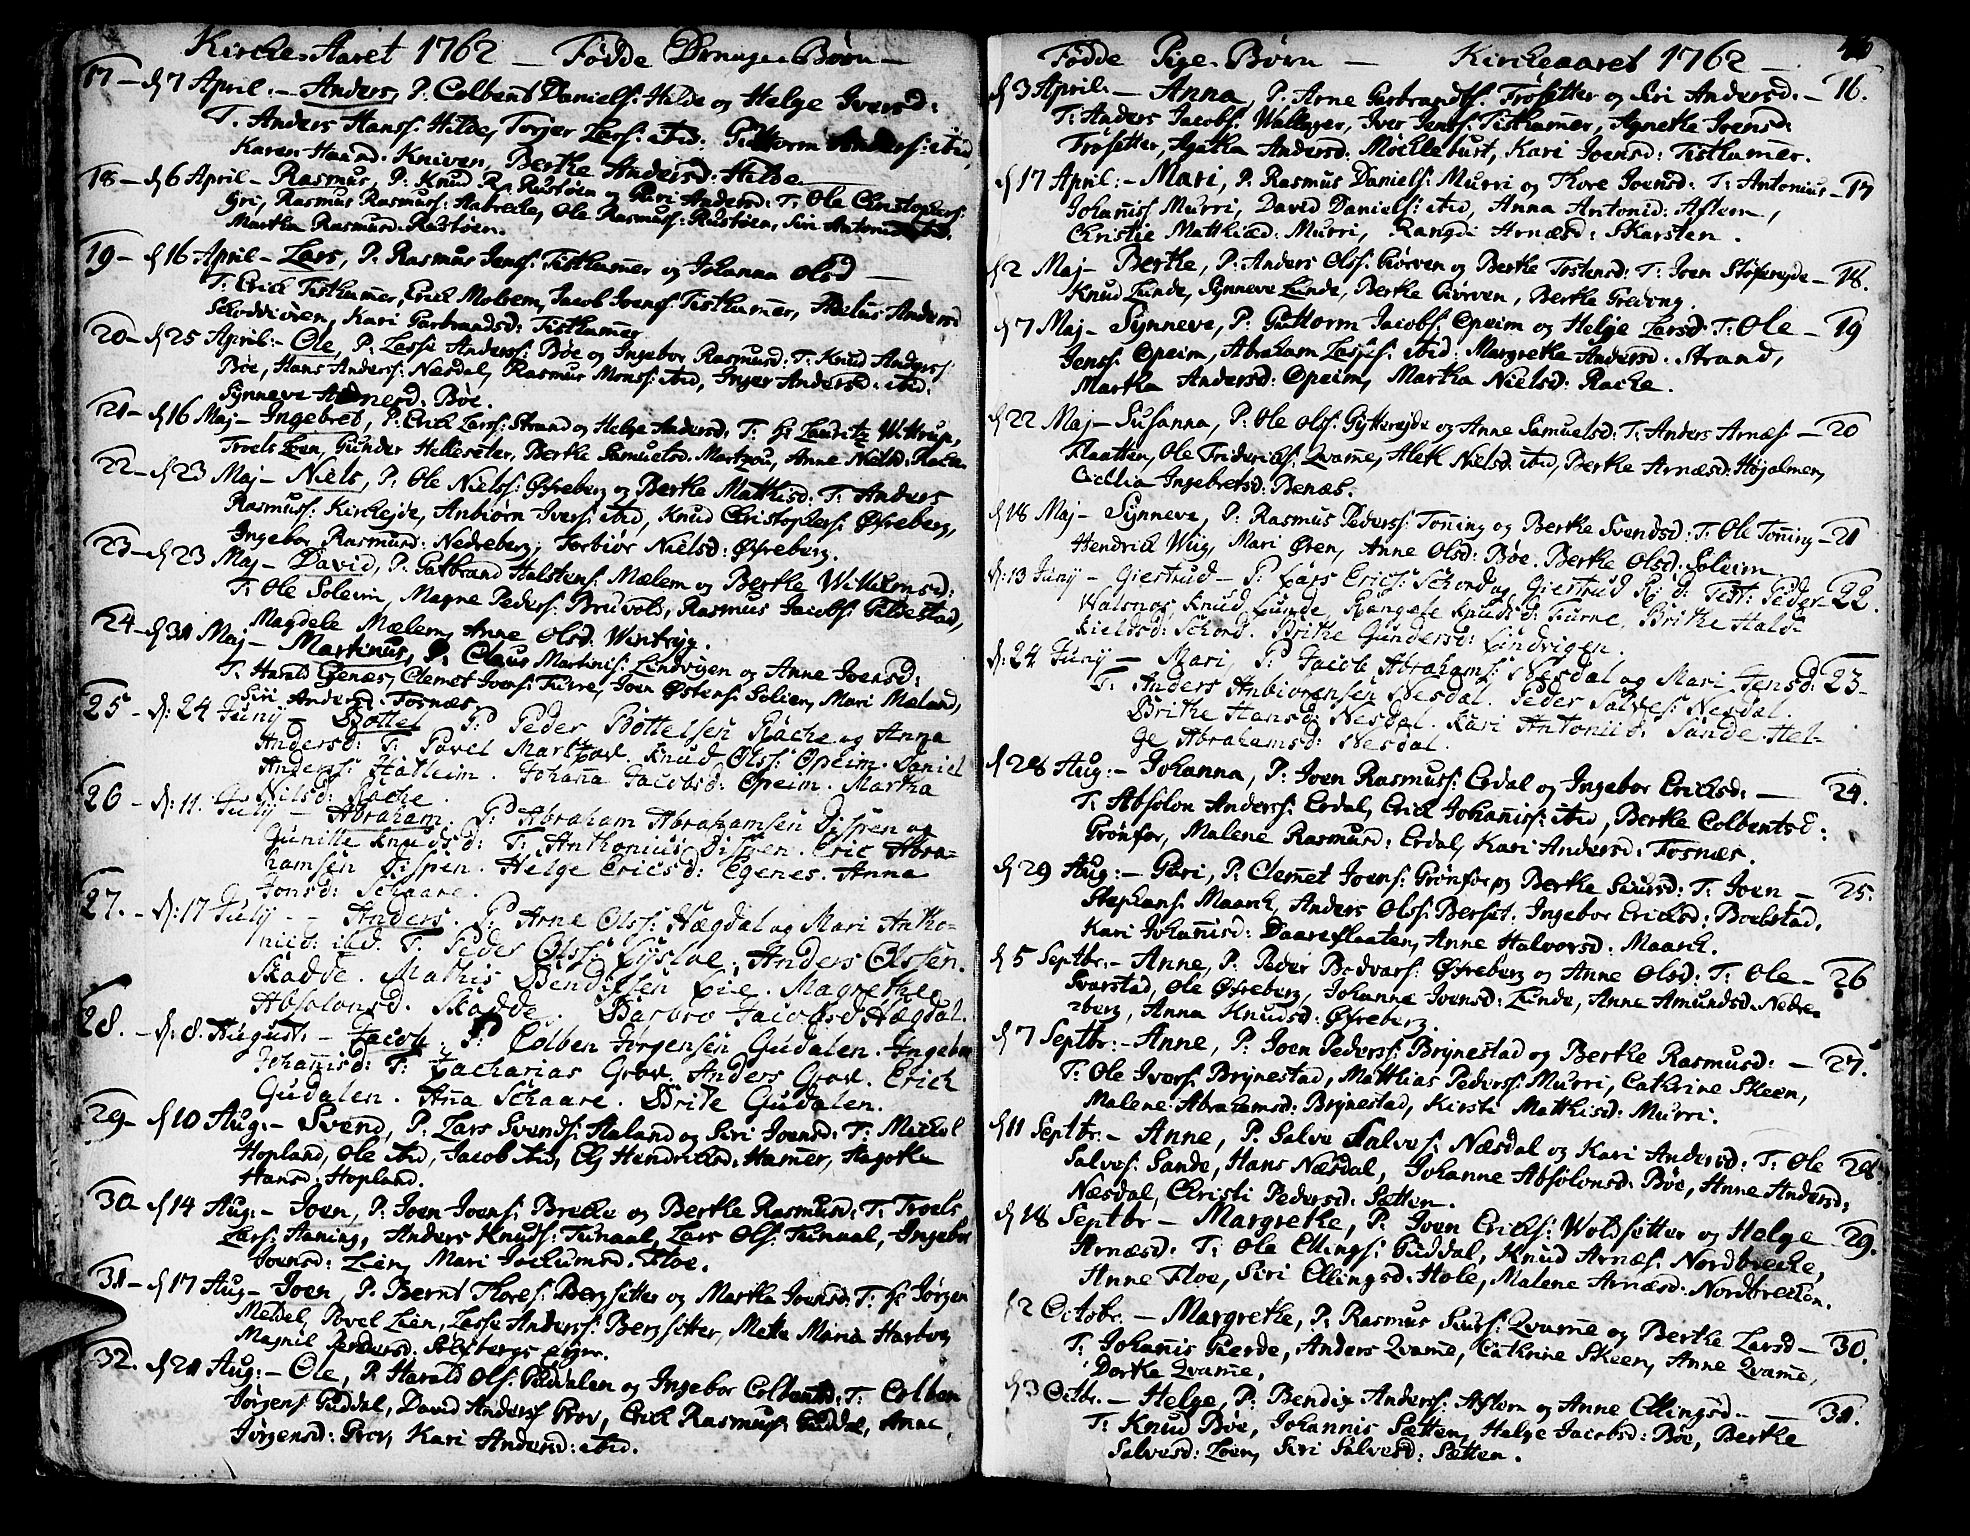 Kirke-Aaret 1762 — Fødde Drenge-Børn —
17 — d 7 April: — Anders, P: Colbent Daniels: Hilde og Helge Iversd:
T: Anders Hanss: Hilde, Torjer Larss: ibid: Guttorm Anderss: ibid,
Karen Haand: Kniven, Berthe Andersd: Hilde
18 — d 6 April — Rasmus, P: Knud R: Rustøen og Gari Andersd: T: Ole Christophers:
Gri, Rasmus Rasmuss: Aabrecke, Ole Rasmuss: Rustøen, Siri Antonid: ibid.
Martha Rasmusd: Rustøen.
19 — d 16 April — Lars, P: Rasmus Jenss: Tisthamer og Johanna Olsd —
T: Erick Tisthamer, Erick Molvem, Jacob Ivenss: Tisthamer, Adelus Andersd
Skoddivøen, Kari Garbrandsd: Tisthamer
20 — d 25 April: — Ole, P: Lasse Anderss: Bøe og Ingebor Rasmusd: T: Knud Anderss:
Bøe, Hans Anderss: Nesdal, Rasmus Monss: ibid, Inger Andersd: ibid:
Synneve Bøe.
21 — d 16 Maj — Ingebret, P: Erick Larss: Strand og Helge Andersd: T: Hr Lauritz Wittrup,
Troels Loen, Gunder Hellesøter, Berthe Samuelsd: Martzou, Anne Nielsd: Rache
22 — d 23 Maj — Niels, P: Ole Nielss: Øfreberg og Berthe Mathisd: T: Anders
Rasmuss: Kirchejde, Anbiørn Ivers: ibid, Knud Christophers: Øfreberg,
Ingebor Rasmusd: Nedreberg, Torbiør Nielsd: Øfreberg.
23 — d 23 Maj — David, P: Gutbrand Halstens: Mælem og Berthe Willumsd:
T: Ole Soleim, Magne Pederss: Bruvold, Rasmus Jacobs: Gildestad,
Magdele Mælem, Anne Olsd: Wintraj.
24 — d 31 Maj — Martinus, P: Claus Martinss: Lindvigen og Anne Joensd:
T: Harald Genæs, Clemet Ivers: Furre, Joen Østens: Solien, Mari Maland,
Siri Andersd: Tosnæs.
25 — d: 24 Juny — Bottel P: Peder Bottelsen Rache og Anna
Andersd: T: Povel Martzov. Knud Olss: Opeim. Daniel
Anderss: Hatleim. Johana Jacobsd: Opeim. Martha
Nilsd: Rache.
26 — d: 11. July — Abraham. P: Abraham Abrahamsen Dispen og
Gunille Knudsd: T: Anthonius Dispen. Eric Abra-
hamsen Dispen. Helge Ericsd: Egenes. Anna
Jonsd: Schaare.
27. — d: 17 July — Anders. P Arne Olss: Hægdal og Mari Antho-
niid: ibd. T: Peder Olss: Anders Olssen.
Skadde. Mathis Bendixsen Lie. Magrethe
Absolonsd. Skadde. Barbro Jacobsd Hægdal.
28. — d: 8. August: — Jacob. P: Colben Jørgensen Gudalen. Ingebor
Johanisd: T: Zacharias Grov. Anders Grov. Erich
Gudalen. Ana Schaare. Brite Gudalen.
29 — d 10 Aug: — Svend, P: Lars Svends: Aaland og Siri Joensd: T: Mickel
Hopland, Ole ibid, Jacob ibid, Elj Hendricksd: Hamer, Aagothe
Hansd: Hopland.
30 — d 14 Aug: — Joen, P: Joen Joens: Brecke og Berthe Rasmusd: T: Troels
Lars: Aaning, Anders Knuds: Tunaal, Lars Ols: Tunaal, Ingebor
Joensd: Lien, Mari Jochumsd: Floe.
31 — d 17 Aug — Joen, P. Bernt Thores: Bergsitter og Martha Joensd: T: Hr Jørgen
Meldel, Povel Lien, Lasse Anderss: Bergsitter, Mette Maria Harboe,
Magnil
32. d 21 Aug: — Ole, P: Harald Ols: Gudalen og Ingebor Colbentsd: T: Colben
Jørgens: Guddal, David Anderss: Grov, Erick Rasmuss: Guddal, Anne
Jørgensd: Grov, Kari Andersd: ibid.
Fødde Pige-Børn — Kirkeaaret 1762 —
d 3 April: — Anna, P: Arne Garbrandts: Trøsetter og Siri Andersd: — 16.
T: Anders Jacobs: Wallager, Iver Jenss: Tisthamer, Agnethe Ivensd:
Trøsetter, Agatha Andersd: Møcklebust, Kari Joensd: Tisthamer.
d 17 April: — Mari, P: Rasmus Daniels: Murri og Thore Joensd: T: Antonius — 17
Johanis Murri, David Daniels: ibid, Anna Antonid: Aflem,
Christie Matthiæd: Murri, Rangdi Arnæsd: Skarsten.
d 2 Maj — Berthe, P: Anders Olss: Giørven og Berthe Tostensd: T: Joen Støfereyde — 18.
Knud Lunde, Synneve Lunde, Berthe Giørven, Berthe Gredong.
d 7 Maj — Synneve, P: Guttorm Jacobs: Opeim og Helge Larsd: T: Ole — 19
Jenss: Opeim, Abraham Lasses: ibid: Margrethe Andersd: Strand,
Martha Andersd: Opeim, Martha Nielsd: Rache.
d 22 Maj — Susanna, P: Ole Olss: Gytterejde og Anne Samuelsd: T: Anders Arnæs: — 20
Flaatten, Ole Fridericks: Qvame, Aleth Nielsd: ibid, Berthe Arnæsd: Højalmen,
Cicilia Ingebretsd: Benæs.
d 18 Maj — Synneve, P: Rasmus Pederss: Toning og Berthe Svendsd: T: Ole Toning — 21
Hendrick Wiig, Mari Øren, Anne Olsd: Bøe. Berthe Olsd: Soleim.
d: 13 Juny — Giertrud — P: Lars Erics: Schord og Giertrud R: D: Test: Peder — 22.
Walsnøs, Knud Lunde, Rangele Knudsd: Furne, Brithe Hald-
kieldsd: Schord. Brithe Gundersd: Lindvigen.
d: 24 Juny — Mari, P: Jacob Abrahams: Nesdal og Mari Jensd: 23 —
T: Anders Anbiørensen Nesdal. Peder Salves: Nesdal
Brithe Hansd: Nesdal. Kari Antoniid: Sande. Hel-
ge Abrahamsd: Nesdal.
d 28 Aug: — Johanna, P: Joen Rasmuss: Erdal og Ingebor Ericksd: — 24.
T: Absolon Anderss: Erdal, Erick Johaniss: ibid, Berthe Colbentsd:
Grønfor, Malene Rasmusd: Erdal, Kari Andersd: Tosnæs.
d 29 Aug: — Gari, P: Clemet Joens: Grønfor og Berthe Siursd: T: Joen — 25.
Stephans: Maarch, Anders Olss: Berset. Ingebor Ericksd: Boelstad,
Kari Johanisd: Daareflaaten, Anne Halvorsd: Maarch.
d 5 Septbr: — Anne, P: Peder Bodvars: Øfreberg og Anne Olsd: T: Ole — 26
Svarstad, Ole Øfreberg, Johanne Ivensd: Lunde, Anne Amundsd: Nedre-
berg, Anna Knudsd: Øfreberg.
d 7 Septbr: — Anne, P: Joen Pederss: Brynestad og Berthe Rasmusd: — 27.
T: Ole Iverss: Brynestad, Matthias Pederss: Murri, Cathrine Skeen,
Malene Abrahamsd: Brynestad, Kirsti Matthisd: Murri.
d 11 Septbr. — Anne, P: Salve Salves: Næsdal og Kari Andersd: T: Ole 28.
Salves: Sande, Hans Næsdal, Johanne Absolonsd: Bøe, Anne Andersd:
Næsdal, Christi Pedersd: Sætten.
d 18 Septbr — Margrethe, P: Iven Ericks: Woldsetter og Helge — 29.
Arnæsd: T: Ole Ellings: Guddal, Knud Arnæs: Nordbrecke,
Anne Floe, Siri Ellingsd: Hole, Malene Arnæsd: Nordbrecken.
d 2 Octobr. — Margrethe, P: Rasmus Siurs: Qvame og Berthe Larsd — 30.
T: Johanis Gierde, Anders Qvame, Cathrine Skeen, Anne Qvame,
Dorthe Qvame,
d 3 Octbr. — Helge, P: Bendix Anderss: Aflem og Anne Ellingsd — 31.
T: Knud Bøe, Johannis Sætten, Helge Jacobsd: Bøe, Berthe
Salvesd: Loen, Siri Salvesd: Sætten.